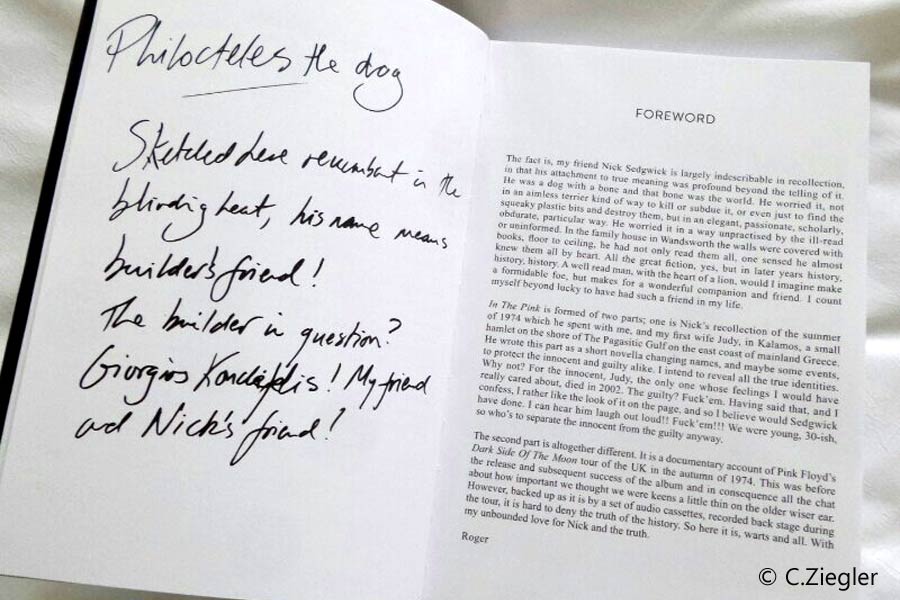 Philocteles the dog
Sketched here recumbent in the
blinding heat, his name means
builder's friend!
The builder in question?
Giorgios ! My friend
and Nick's friend!
FOREWORD
The fact is, my friend Nick Sedgwick is largely indescribable in recollection,
in that his attachment to true meaning was profound beyond the telling of it.
He was a dog with a bone and that bone was the world. He worried it, not
in an aimless terrier kind of way to kill or subdue it, or even just to find the
squeaky plastic bits and destroy them, but in an elegant, passionate, scholarly,
obdurate, particular way. He worried it in a way unpractised by the ill-read
or uninformed. In the family house in Wandsworth the walls were covered with
books, floor to ceiling, he had not only read them all, one sensed he almost
knew them all by heart. All the great fiction, yes, but in later years history,
history, history. A well read man, with the heart of a lion, would I imagine make
a formidable foe, but makes for a wonderful companion and friend. I count
myself beyond lucky to have had such a friend in my life.
In The Pink is formed of two parts; one is Nick's recollection of the summer
of 1974 which he spent with me, and my first wife Judy, in Kalamos, a small
hamlet on the shore of The Pagasitic Gulf on the east coast of mainland Greece.
He wrote this part as a short novella changing names, and maybe some events,
to protect the innocent and guilty alike. I intend to reveal all the true identities.
Why not? For the innocent, Judy, the only one whose feelings I would have
really cared about, died in 2002. The guilty? Fuck'em. Having said that, and I
confess, I rather like the look of it on the page, and so I believe would Sedgwick
have done. I can hear him laugh out loud!! Fuck'em!!! We were young, 30-ish,
so who's to separate the innocent from the guilty anyway.
The second part is altogether different. It is a documentary account of Pink Floyd's
Dark Side Of The Moon tour of the UK in the autumn of 1974. This was before
the release and subsequent success of the album and in consequence all the chat
about how important we thought we were keens a little thin on the older wiser ear.
However, backed up as it is by a set of audio cassettes, recorded back stage during
the tour, it is hard to deny the truth of the history. So here it is, warts and all. With
my unbounded love for Nick and the truth.
Roger
© C.Ziegler